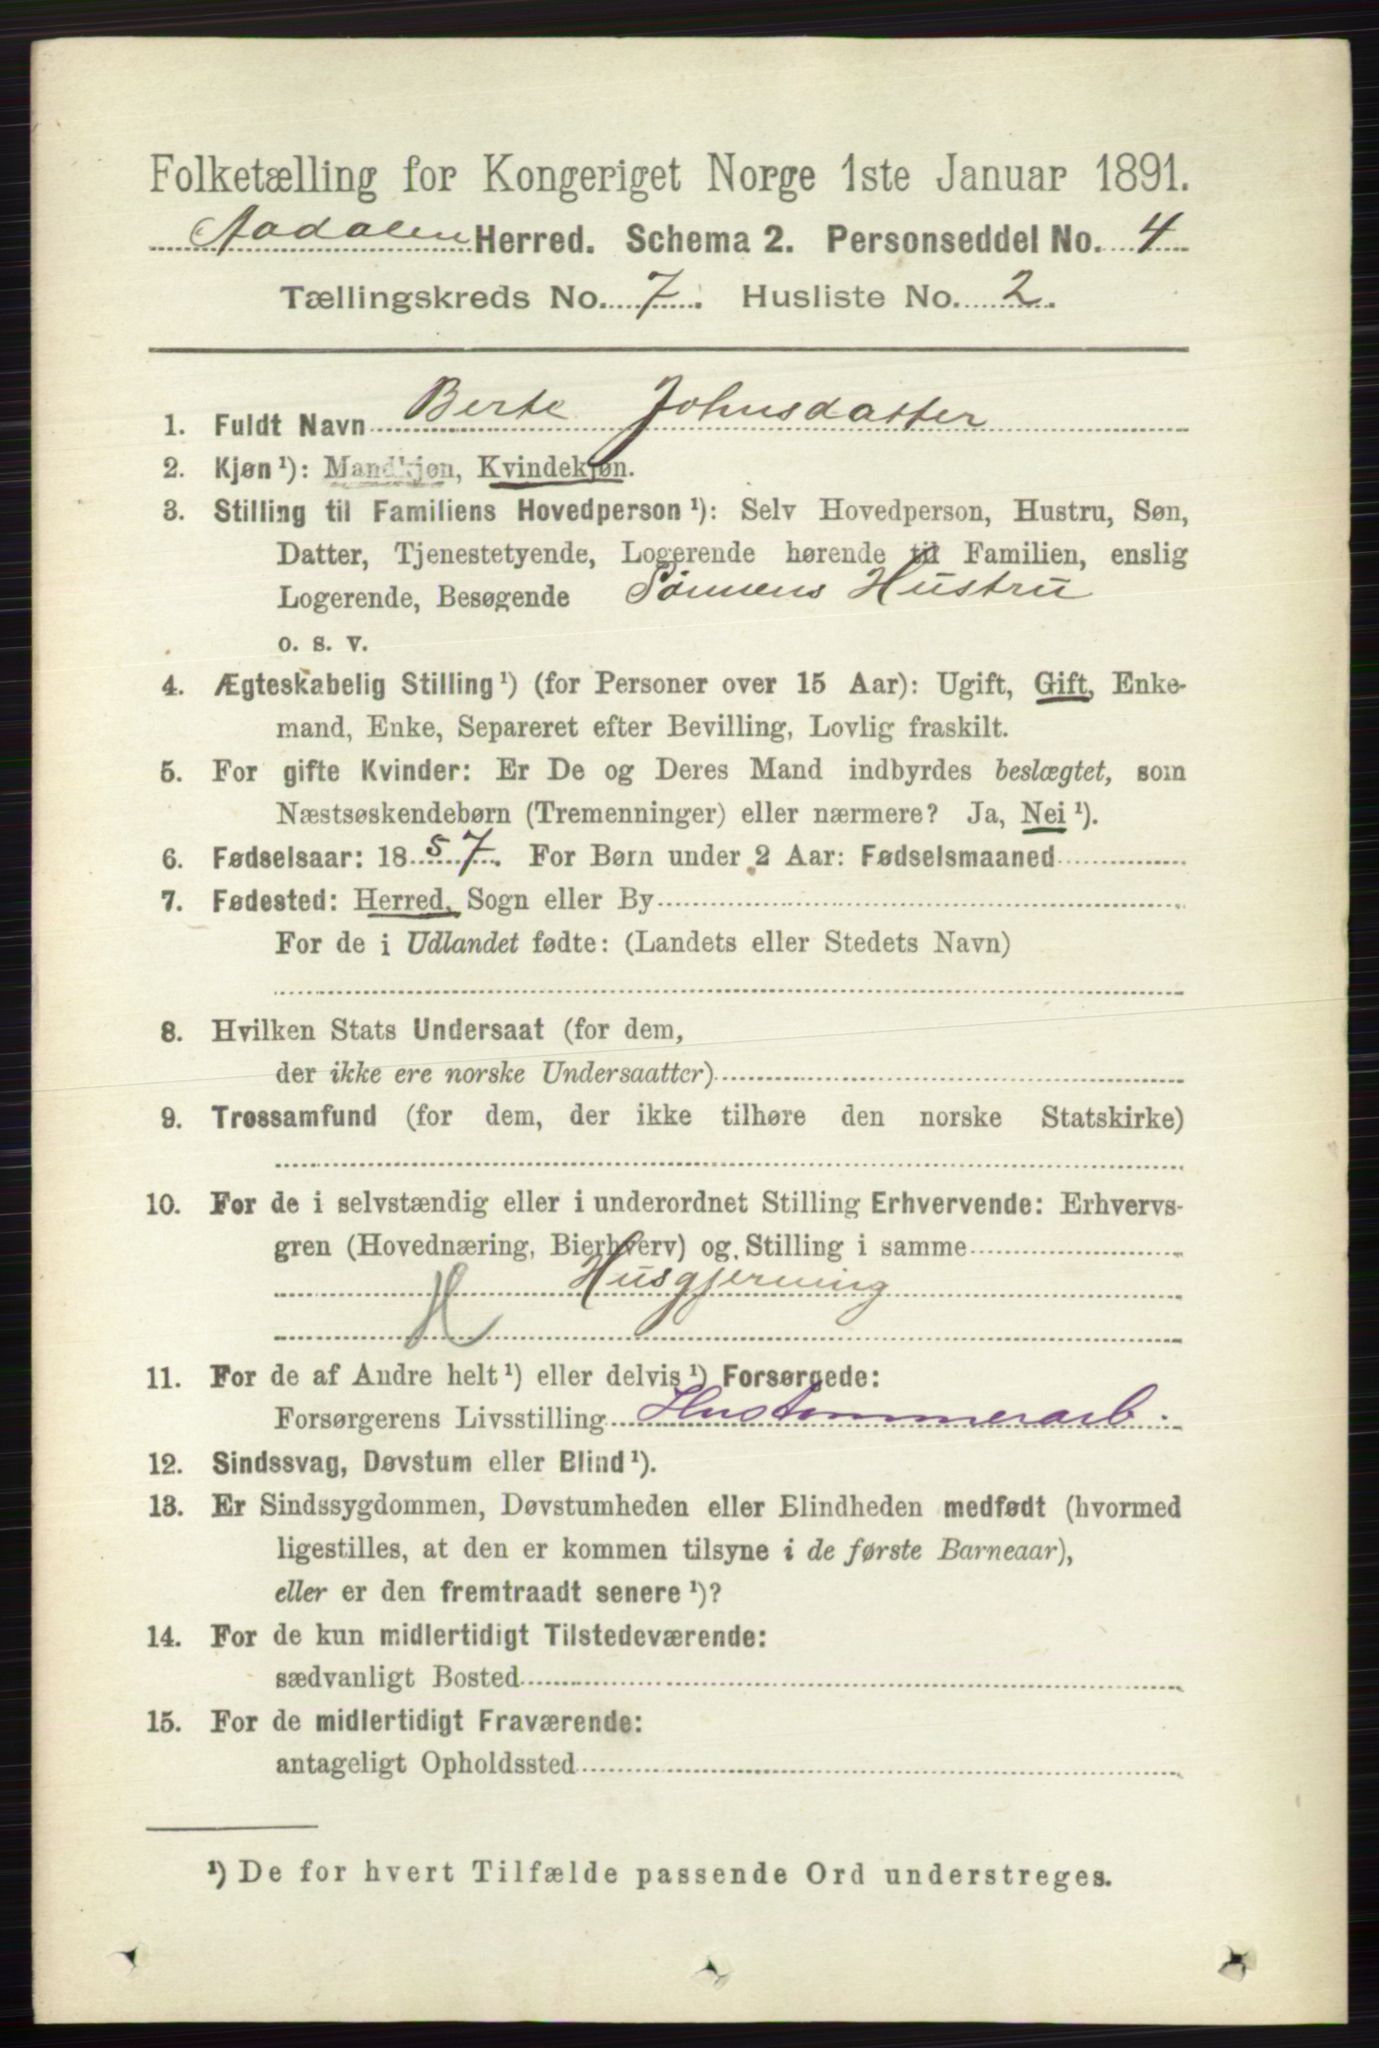 Folketælling for Kongeriget Norge 1ste Januar 1891.
Aadalen Herred. Schema 2. Personseddel No. 4
Tællingskreds No. 7. Husliste No. 2.
1. Fuldt Navn Berte Johnsdatter
2. Kjøn ¹): Mandkjøn, Kvindekjøn.
3. Stilling til Familiens Hovedperson ¹): Selv Hovedperson, Hustru, Søn,
Datter, Tjenestetyende, Logerende hørende til Familien, enslig
Logerende, Besøgende Sønnens Hustru
o. s. v.
4. Ægteskabelig Stilling ¹) (for Personer over 15 Aar): Ugift, Gift, Enke-
mand, Enke, Separeret efter Bevilling, Lovlig fraskilt.
5. For gifte Kvinder: Er De og Deres Mand indbyrdes beslægtet, som
Næstsøskendebørn (Tremenninger) eller nærmere? Ja, Nei ¹).
6. Fødselsaar: 1857. For Børn under 2 Aar: Fødselsmaaned
7. Fødested: Herred, Sogn eller By
For de i Udlandet fødte: (Landets eller Stedets Navn)
8. Hvilken Stats Undersaat (for dem,
der ikke ere norske Undersaatter)
9. Trossamfund (for dem, der ikke tilhøre den norske Statskirke)
10. For de i selvstændig eller i underordnet Stilling Erhvervende: Erhvervs-
gren (Hovednæring, Bierhverv) og Stilling i samme
Husgjerning
H
11. For de af Andre helt ¹) eller delvis ¹) Forsørgede:
Forsørgerens Livsstilling Hustømmerarb.
12. Sindssvag, Døvstum eller Blind ¹).
13. Er Sindssygdommen, Døvstumheden eller Blindheden medfødt (hvormed
ligestilles, at den er kommen tilsyne i de første Barneaar),
eller er den fremtraadt senere ¹)?
14. For de kun midlertidigt Tilstedeværende:
sædvanligt Bosted
15. For de midlertidigt Fraværende:
antageligt Opholdssted
¹) De for hvert Tilfælde passende Ord understreges.